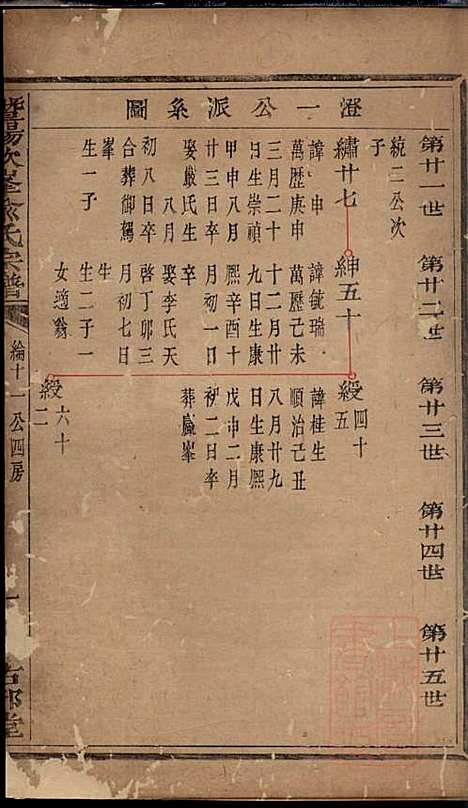 澄一公派系圖
第廿一世
第廿二世
第廿三世
第廿四世
第廿五世
統二公次
子
繡廿七
諱申
萬歷庚申
三月二十
日生崇禎
甲申八月
廿三日卒
娶嚴氏生
八月
初八日卒
合葬御駕
峯
生一子
紳五十
諱毓瑞
萬歷己未
十二月廿
九日生康
熙辛酉十
月初一日
卒
娶李氏天
啓丁卯三
月初七日
生
生二子一
女適翁
綬四十
五
諱桂生
順治己丑
八月廿九
日生康熙
戊申二月
初二日卒
葬巖峯
綬六十
二
氏宗譜
綸十一公四房
一